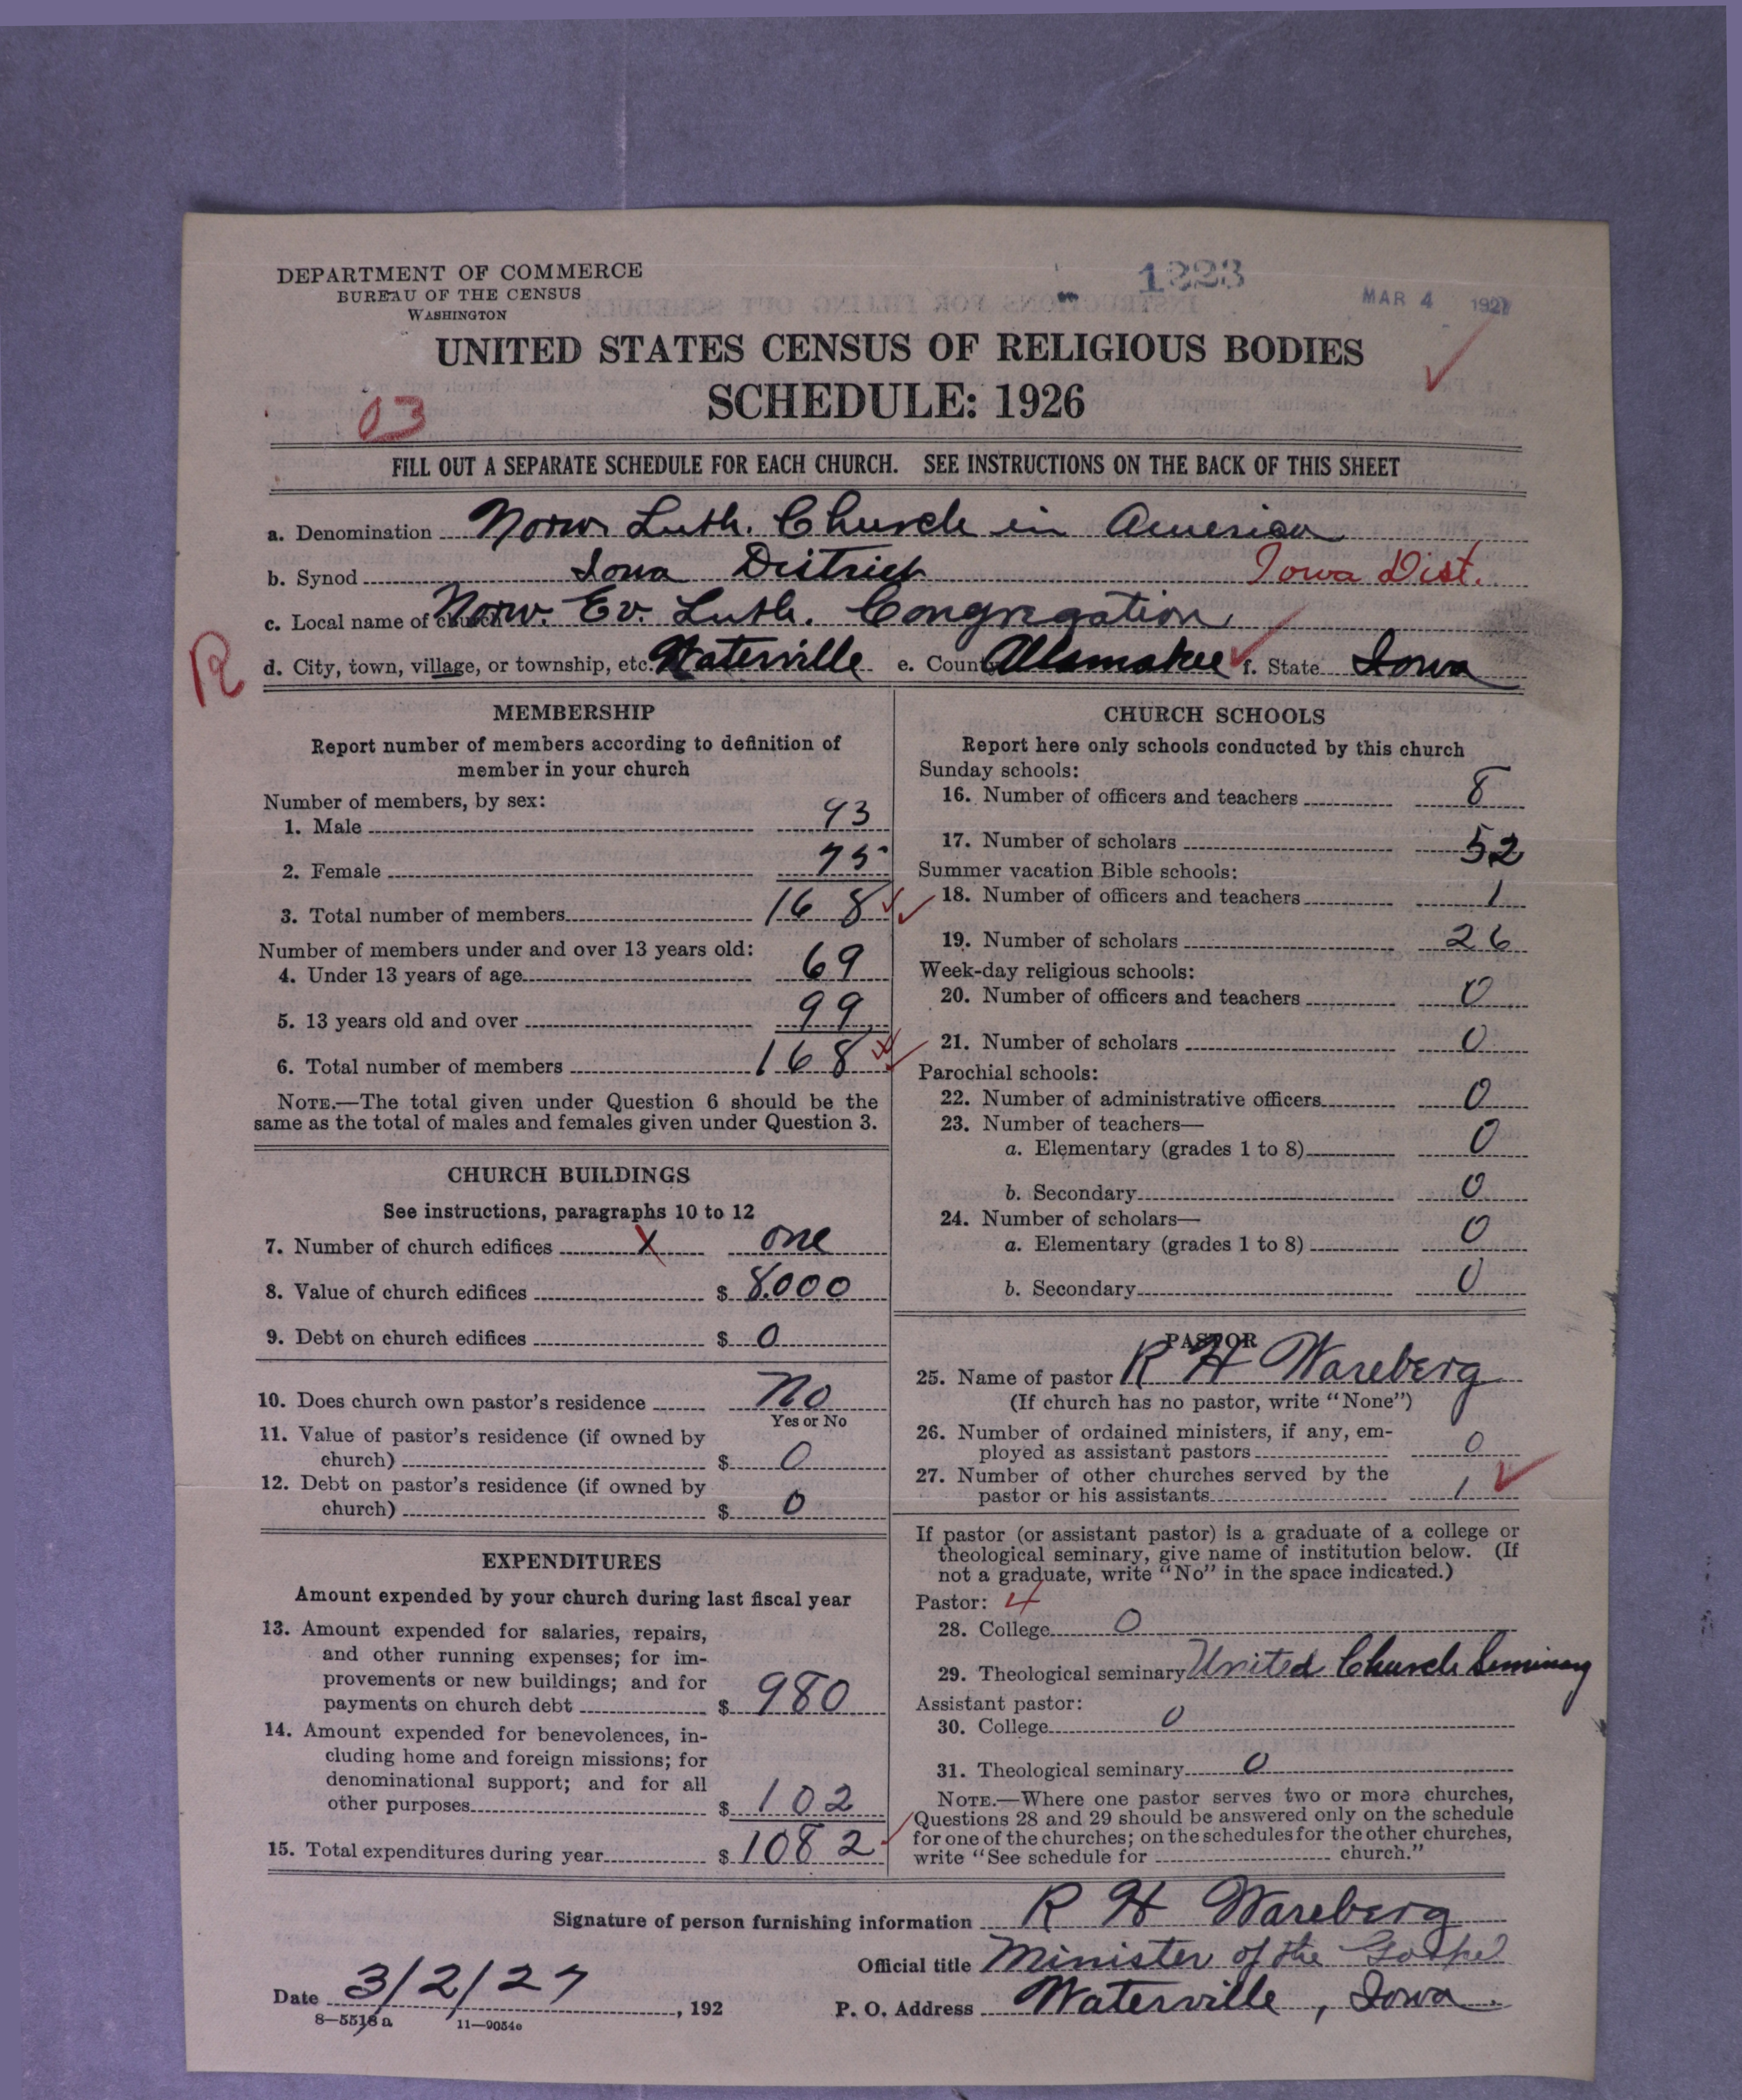 DEPARTMENT OF COMMERCE
BUREAU OF THE CENSUS
WASHINGTON
1223
MAR 4 1927
UNITED STATES CENSUS OF RELIGIOUS BODIES
SCHEDULE: 1926
03
FILL OUT A SEPARATE SCHEDULE FOR EACH CHURCH. SEE INSTRUCTIONS ON THE BACK OF THIS SHEET
a. Denomination Norw. Luth. Church in America
b. Synod Iowa District Iowa Dist.
c. Local name of church Norw. Ev. Luth. Congregation
R
d. City, town, village, or township, etc. Waterville e. County Allamakee f. State Iowa
MEMBERSHIP
Report number of members according to definition of
member in your church
Number of members, by sex:
1. Male 93
2. Female 75
3. Total number of members 168
Number of members under and over 13 years old:
4. Under 13 years of age 69
5. 13 years old and over 99
6. Total number of members 168
NOTE.—The total given under Question 6 should be the
same as the total of males and females given under Question 3.
CHURCH BUILDINGS
See instructions, paragraphs 10 to 12
7. Number of church edifices X one
8. Value of church edifices $ 8,000
9. Debt on church edifices $ 0
10. Does church own pastor's residence No
Yes or No
11. Value of pastor's residence (if owned by
church) $ 0
12. Debt on pastor's residence (if owned by
church) $ 0
EXPENDITURES
Amount expended by your church during last fiscal year
13. Amount expended for salaries, repairs,
and other running expenses; for im-
provements or new buildings; and for
payments on church debt $ 980
14. Amount expended for benevolences, in-
cluding home and foreign missions; for
denominational support; and for all
other purposes $ 102
15. Total expenditures during year $ 1082
CHURCH SCHOOLS
Report here only schools conducted by this church
Sunday schools:
16. Number of officers and teachers 8
17. Number of scholars 52
Summer vacation Bible schools:
18. Number of officers and teachers 1
19. Number of scholars 26
Week-day religious schools:
20. Number of officers and teachers 0
21. Number of scholars 0
Parochial schools:
22. Number of administrative officers 0
23. Number of teachers—
a. Elementary (grades 1 to 8) 0
b. Secondary 0
24. Number of scholars—
a. Elementary (grades 1 to 8) 0
b. Secondary 0
PASTOR
25. Name of pastor R H Wareberg
(If church has no pastor, write "None")
26. Number of ordained ministers, if any, em-
ployed as assistant pastors 0
27. Number of other churches served by the
pastor or his assistants 1
If pastor (or assistant pastor) is a graduate of a college or
theological seminary, give name of institution below. (If
not a graduate, write "No" in the space indicated.)
Pastor: 4
28. College 0
29. Theological seminary United Church Seminary
Assistant pastor:
30. College 0
31. Theological seminary 0
NOTE.—Where one pastor serves two or more churches,
Questions 28 and 29 should be answered only on the schedule
for one of the churches; on the schedules for the other churches,
write "See schedule for church."
Signature of person furnishing information R H Wareberg
Official title Minister of the Gospel
Date 3/2/27, 192
P. O. Address Waterville, Iowa.
8—5518 a 11—9054e